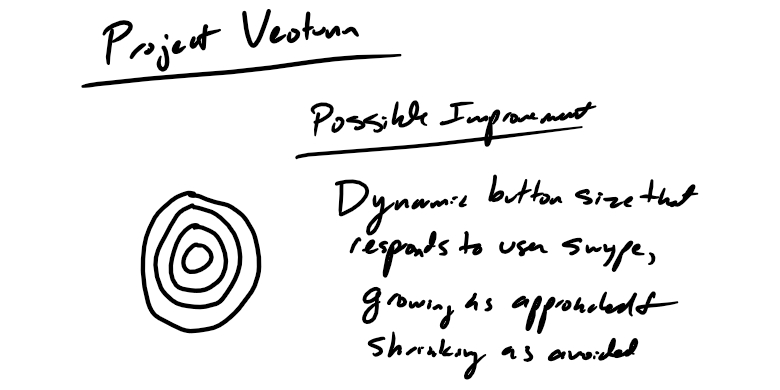 Project Veotunn
Possible Improvement
Dynamic button size that
responds to user swype,
growing as approached &
shrinking as avoided